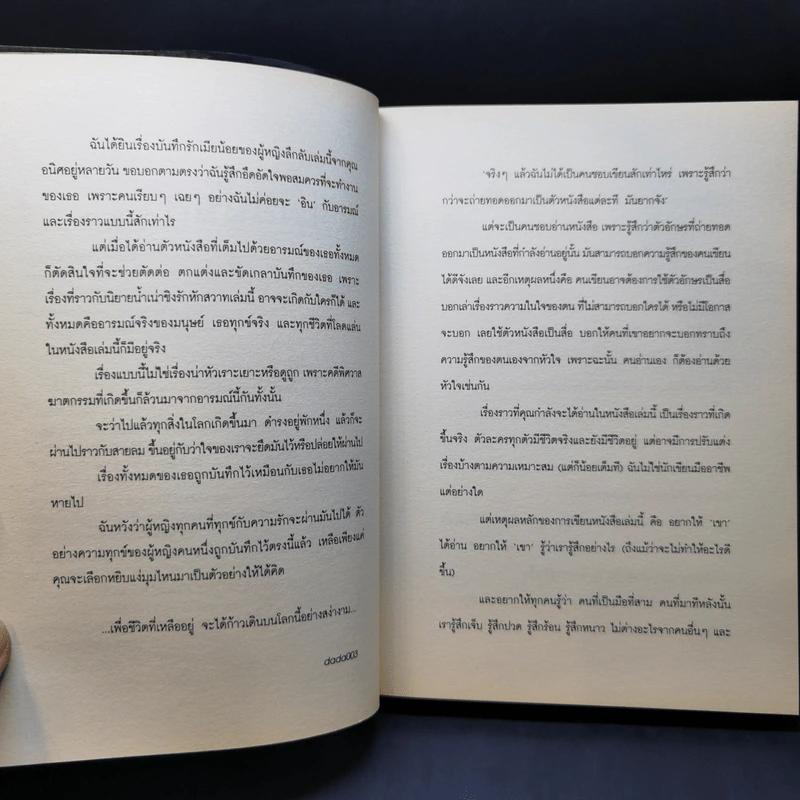 ฉันได้ยินเรื่องบันทึกรักเมียน้อยของผู้หญิงลึกลับเล่มนี้จากคุณ
อนิศอยู่หลายวัน ขอบอกตามตรงว่าฉันรู้สึกอึดอัดใจพอสมควรที่จะทำงาน
ของเธอ เพราะคนเรียบๆ เฉยๆ อย่างฉันไม่ค่อยจะ 'อิน' กับอารมณ์
และเรื่องราวแบบนี้สักเท่าไร
แต่เมื่อได้อ่านตัวหนังสือที่เต็มไปด้วยอารมณ์ของเธอทั้งหมด
ก็ตัดสินใจที่จะช่วยตัดต่อ ตกแต่งและขัดเกลาบันทึกของเธอ เพราะ
เรื่องที่ราวกับนิยายน้ำเน่าชิงรักหักสวาทเล่มนี้ อาจจะเกิดกับใครก็ได้ และ
ทั้งหมดคืออารมณ์จริงของมนุษย์ เธอทุกข์จริง และทุกชีวิตที่โลดแล่น
ในหนังสือเล่มนี้ก็มีอยู่จริง
เรื่องแบบนี้ไม่ใช่เรื่องน่าหัวเราะเยาะหรือดูถูก เพราะคดีพิศวาส
ฆาตกรรมที่เกิดขึ้นก็ล้วนมาจากอารมณ์นี้กันทั้งนั้น
จะว่าไปแล้วทุกสิ่งในโลกเกิดขึ้นมา ดำรงอยู่พักหนึ่ง แล้วก็จะ
ผ่านไปราวกับสายลม ขึ้นอยู่กับว่าใจของเราจะยึดมันไว้หรือปล่อยให้ผ่านไป
เรื่องทั้งหมดของเธอถูกบันทึกไว้เหมือนกับเธอไม่อยากให้มัน
หายไป
ฉันหวังว่าผู้หญิงทุกคนที่ทุกข์กับความรักจะผ่านมันไปได้ ตัว
อย่างความทุกข์ของผู้หญิงคนหนึ่งถูกบันทึกไว้ตรงนี้แล้ว เหลือเพียงแค่
คุณจะเลือกหยิบแง่มุมไหนมาเป็นตัวอย่างให้ได้คิด
...เพื่อชีวิตที่เหลืออยู่ จะได้ก้าวเดินบนโลกนี้อย่างสง่างาม...
dada003
'จริงๆ แล้วฉันไม่ได้เป็นคนชอบเขียนสักเท่าไหร่ เพราะรู้สึกว่า
กว่าจะถ่ายทอดออกมาเป็นตัวหนังสือแต่ละที มันยากจัง'
แต่จะเป็นคนชอบอ่านหนังสือ เพราะรู้สึกว่าตัวอักษรที่ถ่ายทอด
ออกมาเป็นหนังสือที่กำลังอ่านอยู่นั้น มันสามารถบอกความรู้สึกของคนเขียน
ได้ดีจังเลย และอีกเหตุผลหนึ่งคือ คนเขียนอาจต้องการใช้ตัวอักษรเป็นสื่อ
บอกเล่าเรื่องราวความในใจของตน ที่ไม่สามารถบอกใครได้ หรือไม่มีโอกาส
จะบอก เลยใช้ตัวหนังสือเป็นสื่อ บอกให้คนที่เขาอยากจะบอกทราบถึง
ความรู้สึกของตนเองจากหัวใจ เพราะฉะนั้น คนอ่านเอง ก็ต้องอ่านด้วย
หัวใจเช่นกัน
เรื่องราวที่คุณกำลังจะได้อ่านในหนังสือเล่มนี้ เป็นเรื่องราวที่เกิด
ขึ้นจริง ตัวละครทุกตัวมีชีวิตจริงและยังมีชีวิตอยู่ แต่อาจมีการปรับแต่ง
เรื่องบ้างตามความเหมาะสม (แต่ก็น้อยเต็มที) ฉันไม่ใช่นักเขียนมืออาชีพ
แต่อย่างใด
แต่เหตุผลหลักของการเขียนหนังสือเล่มนี้ คือ อยากให้ 'เขา'
ได้อ่าน อยากให้ 'เขา' รู้ว่าเรารู้สึกอย่างไร (ถึงแม้ว่าจะไม่ทำให้อะไรดี
ขึ้น)
และอยากให้ทุกคนรู้ว่า คนที่เป็นมือที่สาม คนที่มาทีหลังนั้น
เรารู้สึกเจ็บ รู้สึกปวด รู้สึกร้อน รู้สึกหนาว ไม่ต่างอะไรจากคนอื่นๆ และ